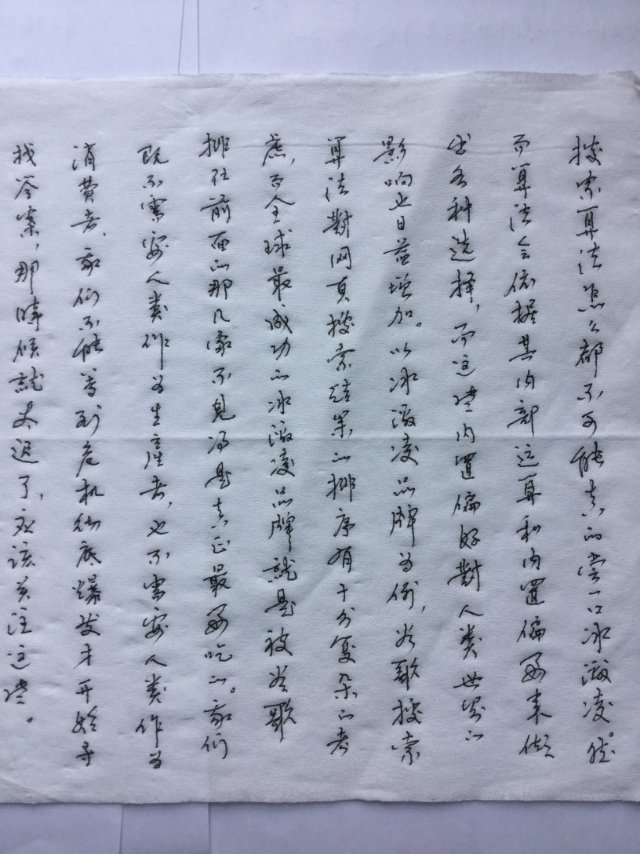 搜索算法怎么都不可能真的尝一口冰激凌。然
而算法会依据其内部运算和内置偏好来做
出各种选择，而这些内置偏好對人类世界的
影响也日益增加。以冰激凌品牌为例，谷歌搜索
算法對网页搜索结果的排序有十分复杂的考
虑，而全球最成功的冰激凌品牌就是被谷歌
排在前面的那几家不見得是真正最好吃的。我们
既不需要人类作为生産者，也不需要人类作为
消費者，我们不能等到危机彻底爆发才开始寻
找答案，那時候就太迟了，应该关注这些。